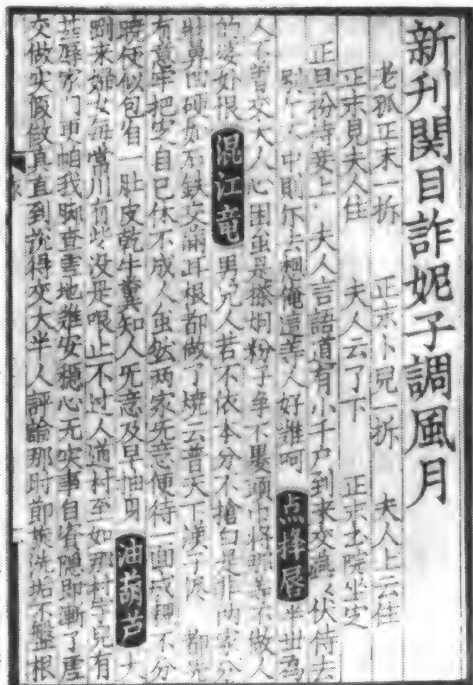 新刊関目詐妮子調風月
老孤正末一折　正末卜兒一折　夫人上云住
正末見夫人住　夫人云了下　正末書院坐定
正旦扮侍妾上　夫人言語道有小千户到来交　伏侍去
不中則你去想俺這等人好難呵　点絳唇　半世為
人不曾交大人心困虽是搽胭粉子争不裹頭巾将那等不做人
的婆娘恨　混江竜　男兒人若不依本分不搶白是非两家分
壮鼻凹硬如石鉄交滿耳根都做了燒云普天下漢子尽　都先
有意牢把定自己休不成人虽然两家无意便待一面成親不分
暁便似包着一肚皮乾牛糞知人无意及早抽身　油葫芦　大
剛来婦女每常川有些没是哏止不过人道村至如那村字兒有
甚辱家门更怕我脚查雪地難安穏心无实事自資隠即漸了虚
交做实假做真直到説得交大半人評論那时節旋洗垢不盤根